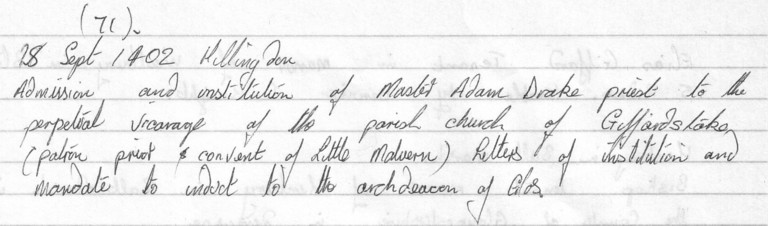 (71).
28 Sept 1402 Hillingdon
Admission and institution of Master Adam Drake priest to the
perpetual vicarage of the parish church of Giffardstoke,
(patron prior & convent of Little Malvern) Letters of institution and
mandate to induct to the archdeacon of Glos.